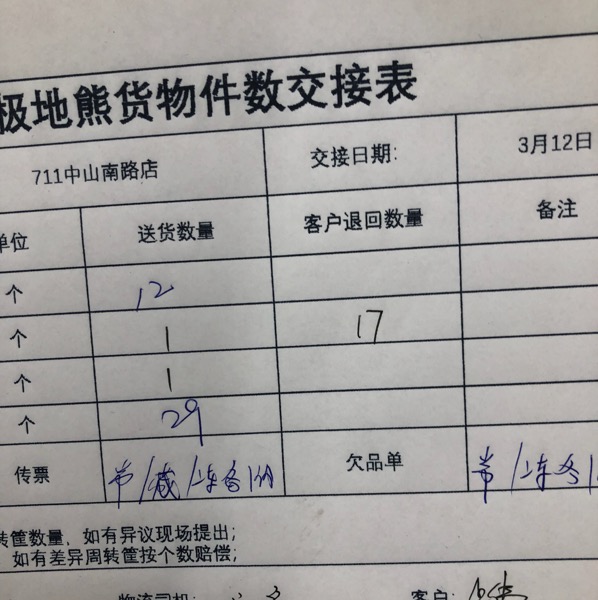 极地熊货物件数交接表
711中山南路店 交接日期: 3月12日
单位 送货数量 客户退回数量 备注
个 12
个 1 17
个 1
个 29
传票 欠品单
转筐数量，如有异议现场提出；
如有差异周转筐按个数赔偿；
物流司机: 客户: